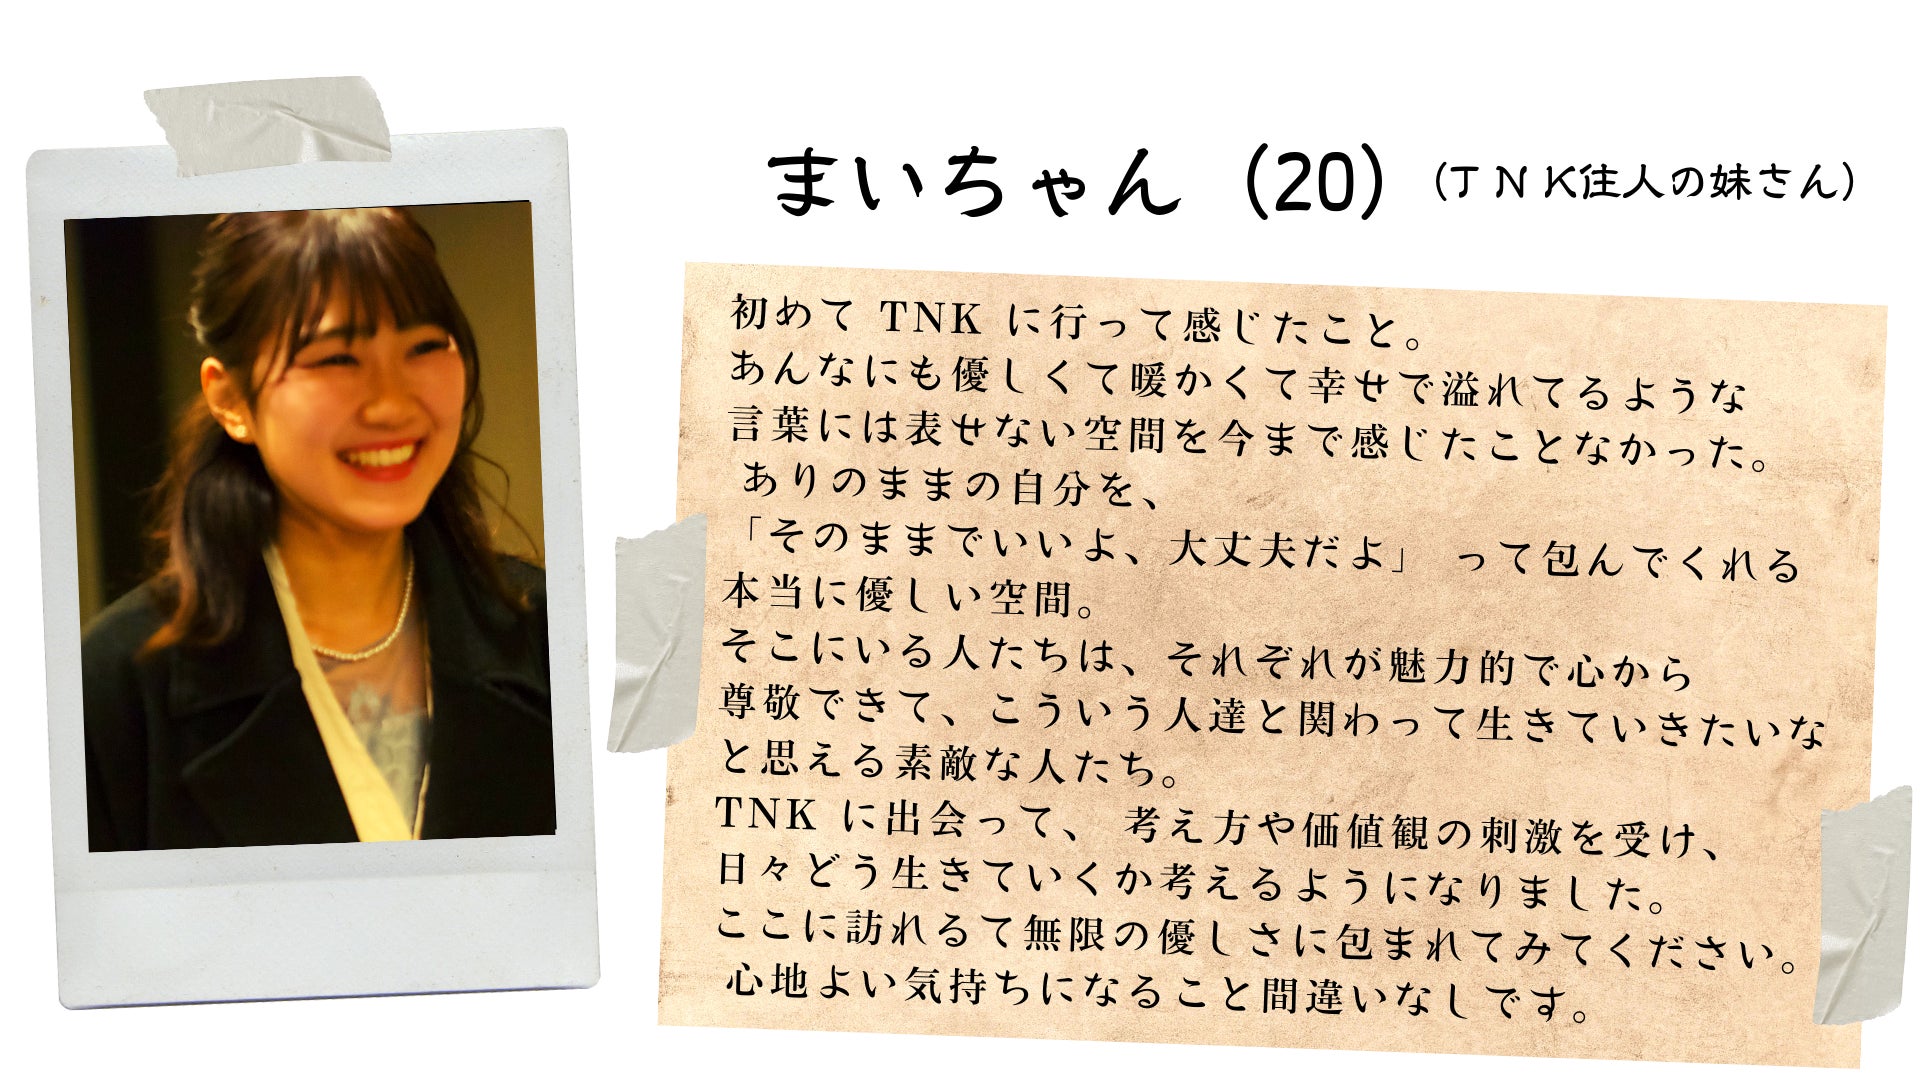 まいちゃん（20）（ＴＮＫ住人の妹さん）
初めて TNK に行って感じたこと。
あんなにも優しくて暖かくて幸せで溢れてるような
言葉には表せない空間を今まで感じたことなかった。
ありのままの自分を、
「そのままでいいよ、大丈夫だよ」 って包んでくれる
本当に優しい空間。
そこにいる人たちは、それぞれが魅力的で心から
尊敬できて、こういう人達と関わって生きていきたいな
と思える素敵な人たち。
TNK に出会って、 考え方や価値観の刺激を受け、
日々どう生きていくか考えるようになりました。
ここに訪れるて無限の優しさに包まれてみてください。
心地よい気持ちになること間違いなしです。